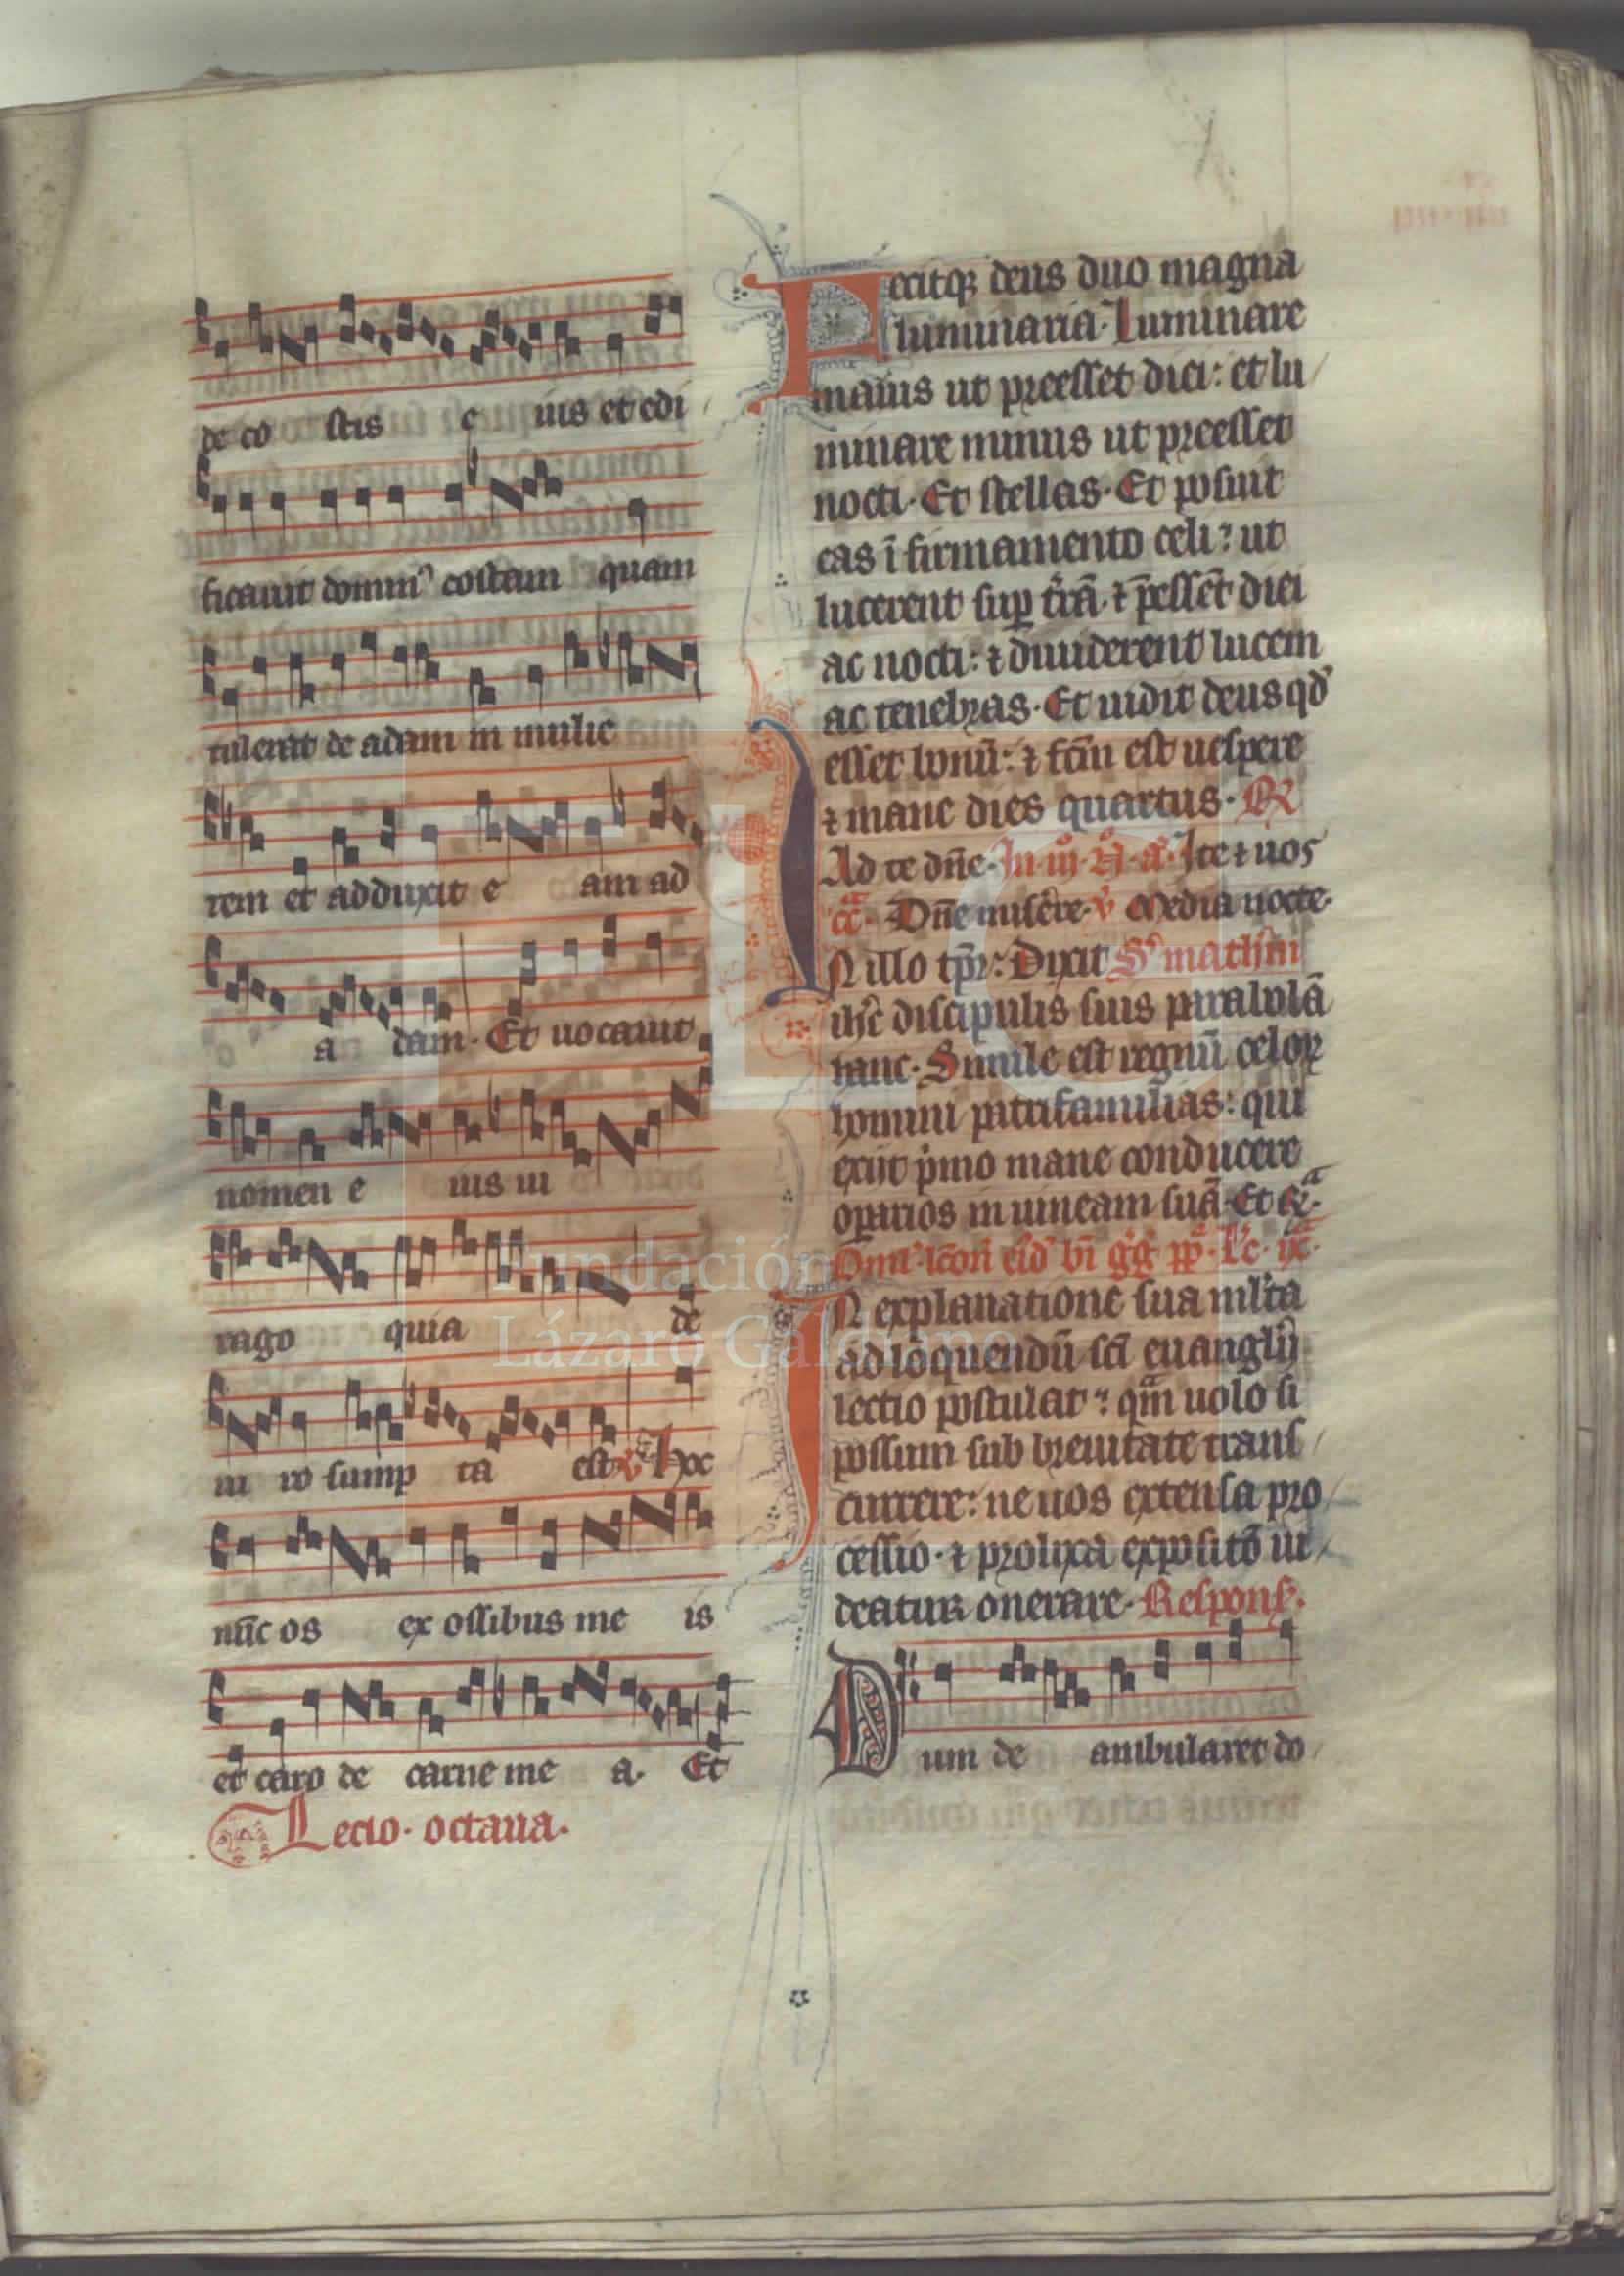 de co stis e ius et edi
ficauit domin⁹ costam quam
tulerat de adam in mulie
rem et adduxit e am ad
a dam. Et uocauit
nomen e ius ui
rago quia de
ui ro sump ta est ℣ Hoc
nūc os ex ossibus me is
et caro de carne me a. Et
Lectio. octaua.
Fecitqꝫ deus duo magna
luminaria. Luminare
maius ut preesset diei: et lu
minare minus ut preesset
nocti. Et stellas. Et posuit
eas ī firmamento celi: ut
lucerent suꝑ t̄rā. ⁊ p̄essēt diei
ac nocti: ⁊ diuiderent lucem
ac tenebras. Et uidit deus qđ
esset bonū: ⁊ fc̄m est uespere
⁊ mane dies quartus. ℟
Ad te dn̄e. In iij. N̄. a. Ite ⁊ uos
Dn̄e miserere. ℣ Media nocte.
IN illo tp̄r: Dixit S. mathm̄
ihc̄ discipulis suis parabolā
hanc. Simile est regnū celoꝝ
homini patrifamilias: qui
exiit pⁱmo mane conducere
oꝑarios in uineam suā. Et
IN explanatione sua ml̄ta
ad loquendū sc̄i euanglij
lectio postulat: qm̄ uolo si
possum sub breuitate trans
currere: ne uos extensa pro
cessio. ⁊ prolixa expositō ui
deatur onerare. Respons.
Dum de ambularet do
Fundación
Lázaro Galdiano